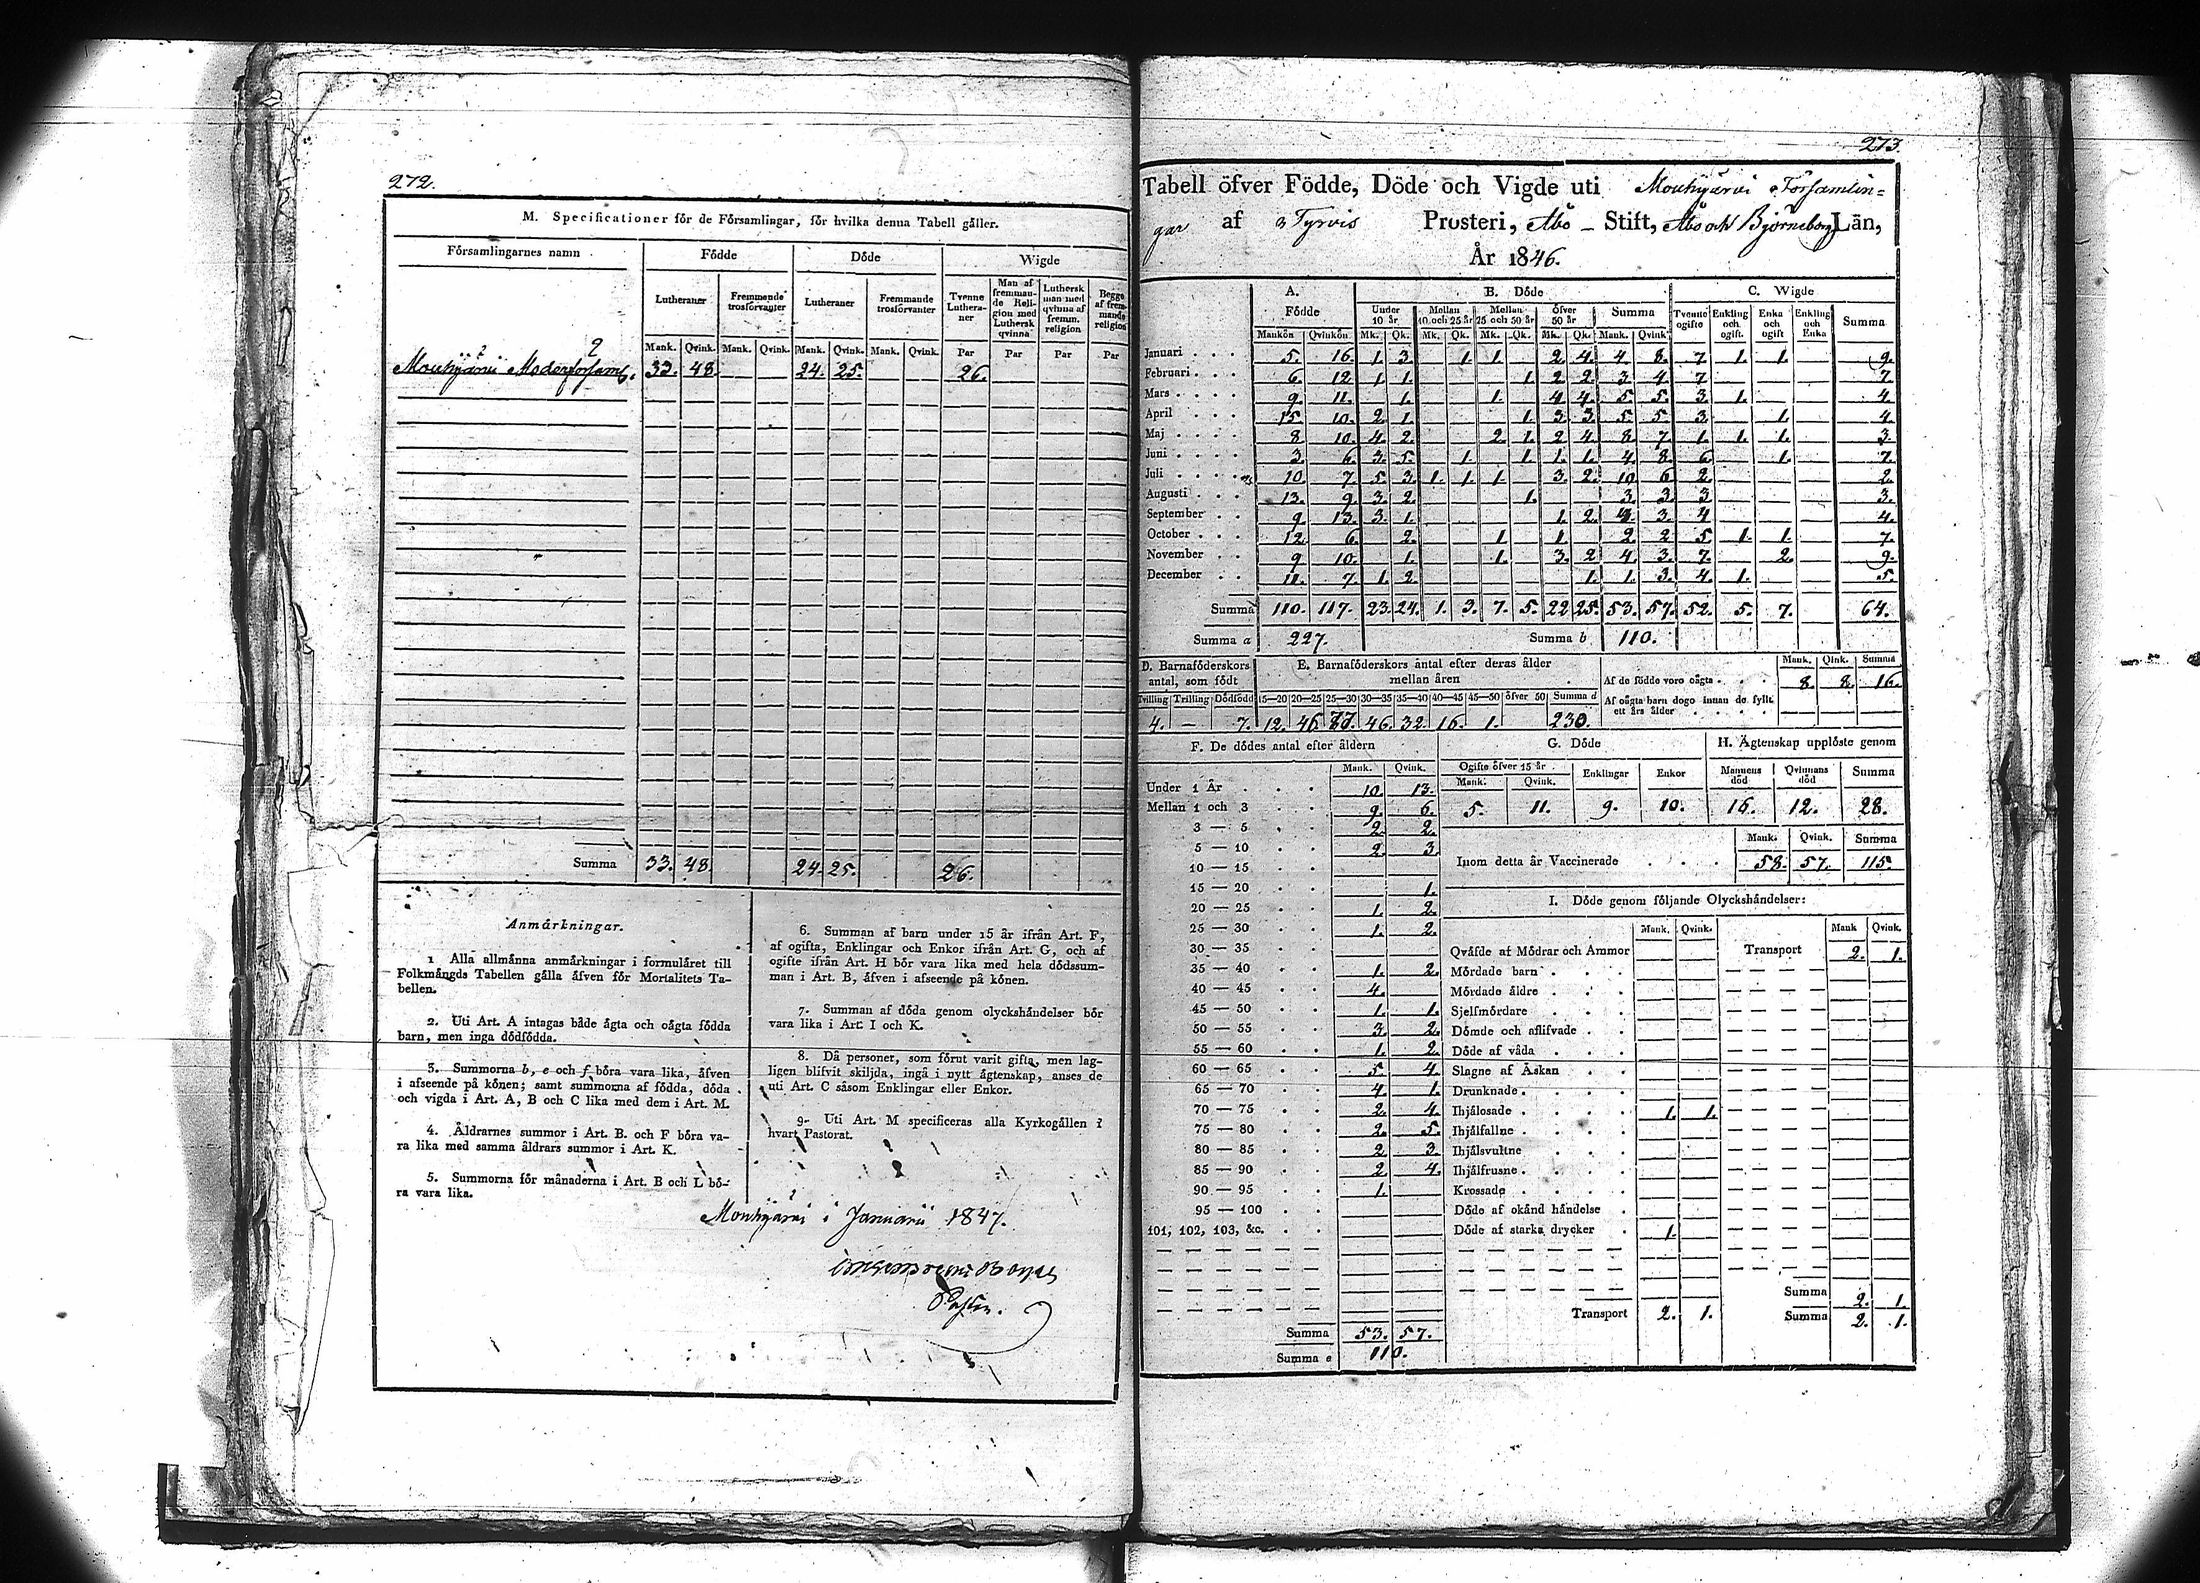 272.
M. Specificationer för de Församlingar, för hvilka denna Tabell gäller.
Församlingarnes namn
Födde Döde Wigde
Lutheraner Fremmande trosförvanter Lutheraner Fremmande trosförvanter Tvenne Lutheraner Man af fremmande Religion med Luthersk qvinna Luthersk man med qvinna af fremm. religion Begge af fremmande religion
Mank. Qvink. Mank. Qvink. Mank. Qvink. Mank. Qvink. Par Par Par Par
Mouhijärvi Moderförsaml. 33. 48. 24. 25. 26.
Summa 33. 48. 24. 25. 26.
Anmärkningar.
1 Alla allmänna anmärkningar i formuläret till
Folkmängds Tabellen gälla äfven för Mortalitets Ta-
bellen.
2. Uti Art. A intagas både ägta och oägta födda
barn, men inga dödfödda.
3. Summorna b, e och f böra vara lika, äfven
i afseende på könen; samt summorna af födda, döda
och vigda i Art. A, B och C lika med dem i Art. M.
4. Åldrarnes summor i Art. B. och F böra va-
ra lika med samma åldrars summor i Art. K.
5. Summorna för månaderna i Art. B och L bö-
ra vara lika.
6. Summan af barn under 15 år ifrån Art. F,
af ogifta, Enklingar och Enkor ifrån Art. G, och af
ogifte ifrån Art. H bör vara lika med hela dödssum-
man i Art. B, äfven i afseende på könen.
7. Summan af döda genom olyckshändelser bör
vara lika i Art. I och K.
8. Då personer, som förut varit gifta, men lag-
ligen blifvit skiljda, ingå i nytt ägtenskap, anses de
uti Art. C såsom Enklingar eller Enkor.
9. Uti Art. M specificeras alla Kyrkogällen i
hvart Pastorat.
Mouhijärvi i Januarii 1847.
Pastor.
273.
Tabell öfver Födde, Döde och Vigde uti Mouhijärvi Församlin=
gar af Tyrvis Prosteri, Åbo Stift, Åbo och Björneborg Län,
År 1846.
A. Födde B. Döde C. Wigde
Under 10 år Mellan 10 och 25 år Mellan 25 och 50 år öfver 50 år Summa Tvenne ogifte Enkling och ogift. Enka och ogift Enkling och Enka Summa
Mankön Qvinkön Mk. Qk. Mk. Qk. Mk. Qk. Mk. Qk. Mank. Qvink.
Januari 5. 16. 1. 3. 1. 1. 2. 4. 4. 8. 7. 1. 1. 9.
Februari 6. 12. 1. 1. 1. 2. 2. 3. 4. 7. 7.
Mars 9. 11. 1. 1. 4. 4. 5. 5. 3. 1. 4.
April 15. 10. 2. 1. 1. 3. 3. 5. 5. 3. 1. 4.
Maj 8. 10. 4. 2. 2. 1. 2. 4. 8. 7. 1. 1. 1. 3.
Juni 3. 6. 3. 5. 1. 1. 1. 1. 4. 8. 6. 1. 7.
Juli 10. 7. 5. 3. 1. 1. 1. 3. 2. 10. 6. 2. 2.
Augusti 13. 9. 3. 2. 1. 3. 3. 3. 3.
September 9. 13. 3. 1. 1. 2. 4. 3. 4. 4.
October 12. 6. 2. 1. 1. 2. 2. 5. 1. 1. 7.
November 9. 10. 1. 1. 3. 2. 4. 3. 7. 2. 9.
December 11. 7. 1. 2. 1. 1. 3. 4. 1. 5.
Summa 110. 117. 23. 24. 1. 3. 7. 5. 22 25. 53. 57. 52. 5. 7. 64.
Summa a 227. Summa b 110.
D. Barnaföderskors antal, som födt
Tvilling Trilling Dödfödd
4. — 7.
E. Barnaföderskors antal efter deras ålder mellan åren
15—20 20—25 25—30 30—35 35—40 40—45 45—50 öfver 50 Summa d
12. 46 77. 46. 32. 16. 1. 230.
Mank. Qink. Summa
Af de födde voro oägta 8. 8. 16.
Af oägta barn dogo innan de fyllt
ett års ålder
F. De dödes antal efter åldern
Mank. Qvink.
Under 1 År 10. 13.
Mellan 1 och 3 9. 6.
3 — 5 2. 2.
5 — 10 2. 3.
10 — 15
15 — 20 1.
20 — 25 1. 2.
25 — 30 1. 2.
30 — 35
35 — 40 1. 2.
40 — 45 4.
45 — 50 1. 1.
50 — 55 3. 2.
55 — 60 1. 2.
60 — 65 5. 4.
65 — 70 4. 1.
70 — 75 2. 4.
75 — 80 2. 5.
80 — 85 2. 3.
85 — 90 2. 4.
90 — 95 1.
95 — 100
101, 102, 103, &c.
Summa 53. 57.
Summa e 110.
G. Döde
Ogifte öfver 15 år Enklingar Enkor
Mank. Qvink.
5. 11. 9. 10.
H. Ägtenskap upplöste genom
Mannens död Qvinnans död Summa
16. 12. 28.
Mank. Qvink. Summa
Inom detta år Vaccinerade 58. 57. 115.
I. Döde genom följande Olyckshändelser:
Mank. Qvink. Mank Qvink.
Qväfde af Mödrar och Ammor Transport 2. 1.
Mördade barn
Mördade äldre
Sjelfmördare
Dömde och aflifvade
Döde af våda
Slagne af Åskan
Drunknade
Ihjälosade 1. 1.
Ihjälfallne
Ihjälsvultne
Ihjälfrusne
Krossade
Döde af okänd händelse
Döde af starka drycker 1.
Summa 2. 1.
Transport 2. 1. Summa 2. 1.